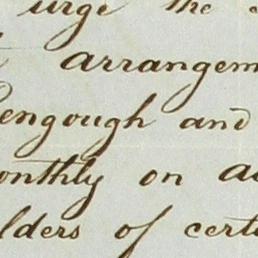 urge the
arrangem
engough and
onthly on a
lders of certa